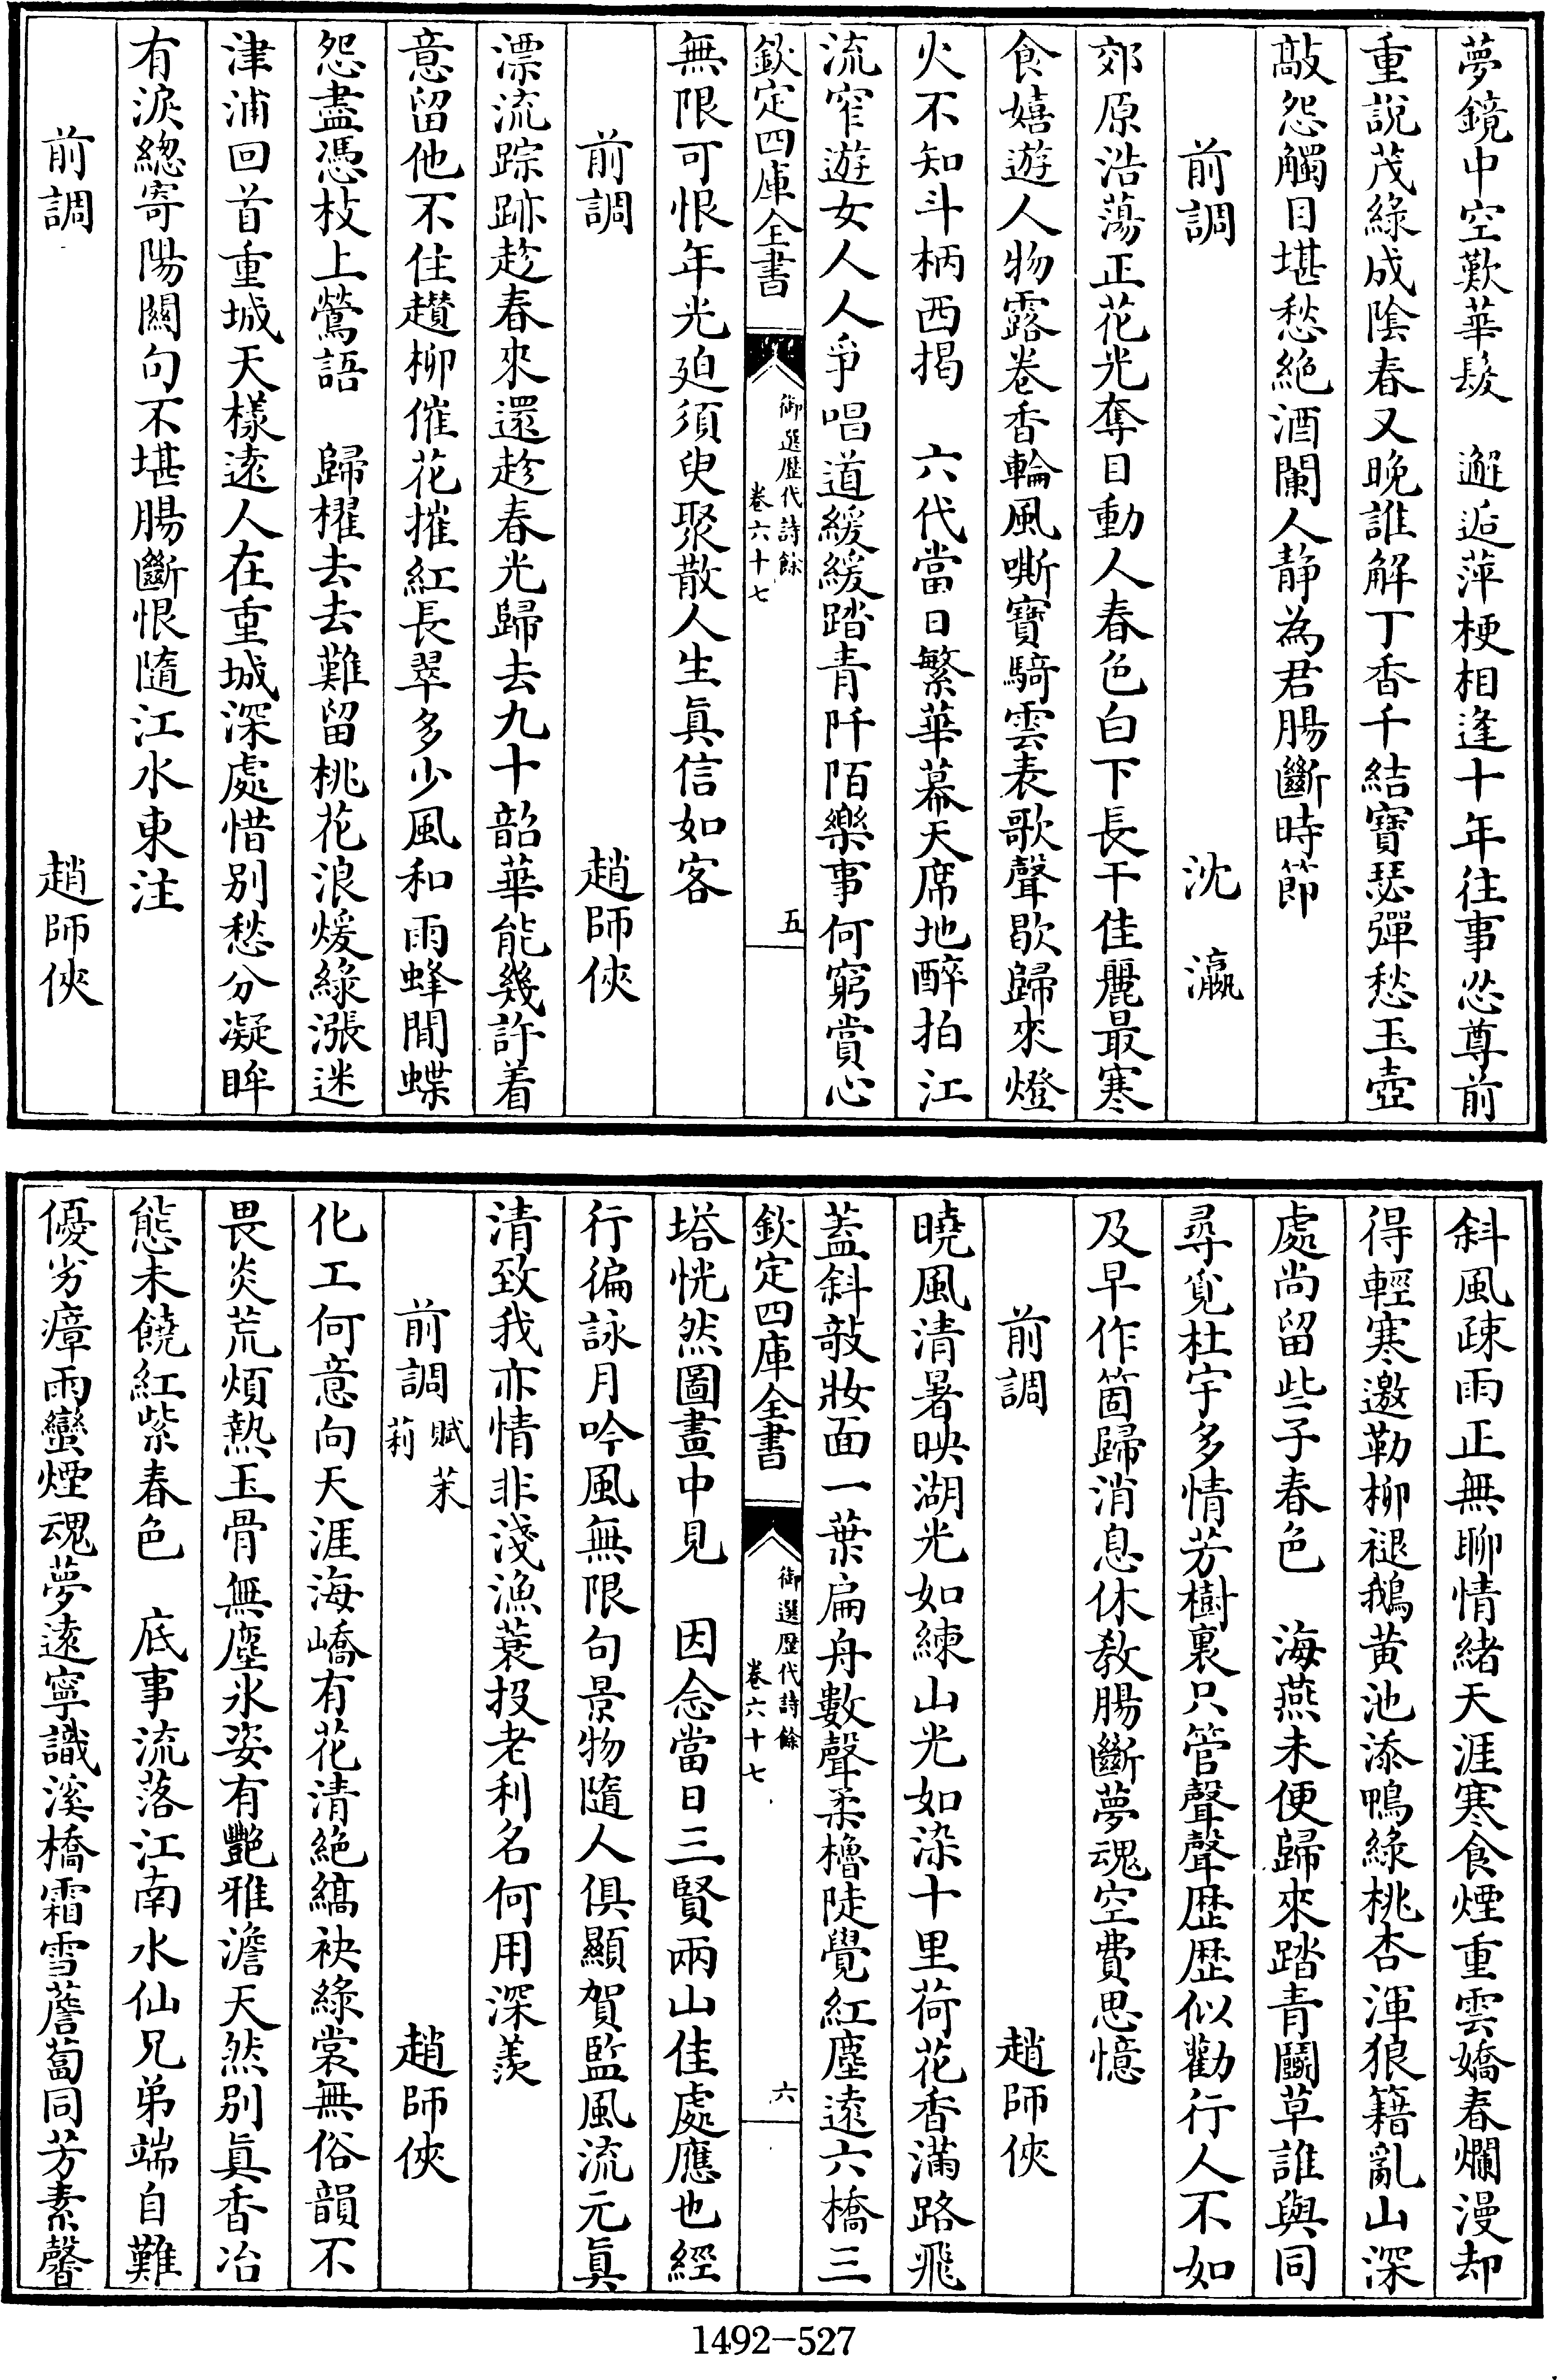 夢鏡中空歎華髮　邂逅萍梗相逢十年往事忿尊前
重說茂綠成陰春又晚誰解丁香千結寶瑟彈愁玉壺
敲怨觸目堪愁絕酒闌人静為君腸斷時節
前調　沈瀛
郊原浩蕩正花光奪目動人春色白下長干佳麗最寒
食嬉遊人物露卷香輪風嘶寶騎雲表歌聲歇歸來燈
火不知斗柄西揭　六代當日繁華幕天席地醉拍江
流窄遊女人人爭唱道緩緩踏青阡陌樂事何窮賞心
欽定四庫全書　御選歷代詩餘　卷六十七　五
無限可恨年光廹須臾聚散人生眞信如客
前調　趙師俠
漂流踪跡趁春來還趁春光歸去九十韶華能幾許着
意留他不住趲柳催花摧紅長翠多少風和雨蜂閒蝶
怨盡憑枝上鶯語　歸櫂去去難留桃花浪煖綠漲迷
津浦回首重城天樣遠人在重城深處惜别愁分凝眸
有淚緫寄陽關句不堪腸斷恨隨江水東注
前調　趙師俠
斜風疎雨正無聊情緒天涯寒食煙重雲嬌春爛漫却
得輕寒邀勒柳褪鵝黄池添鴨綠桃杏渾狼籍亂山深
處尚留些子春色　海燕未便歸來踏青鬭草誰與同
尋覓杜宇多情芳樹裏只管聲聲歷歷似勸行人不如
及早作箇歸消息休教腸斷夢魂空費思憶
前調　趙師俠
曉風清暑映湖光如練山光如染十里荷花香滿路飛
蓋斜敧妝面一葉扁舟數聲柔櫓陡覺紅塵遠六橋三
欽定四庫全書　御選歷代詩餘　卷六十七　六
塔恍然圖畫中見　因念當日三賢兩山佳處應也經
行徧詠月吟風無限句景物隨人俱顯賀監風流元眞
清致我亦情非淺漁蓑投老利名何用深羨
前調　賦茉莉　趙師俠
化工何意向天涯海嶠有花清絕縞袂綠裳無俗韻不
畏炎荒煩熱玉骨無塵氷姿有艷雅澹天然别眞香冶
態未饒紅紫春色　底事流落江南水仙兄弟端自難
優劣瘴雨蠻煙魂夢遠寧識溪橋霜雪薝蔔同芳素馨
1492-527